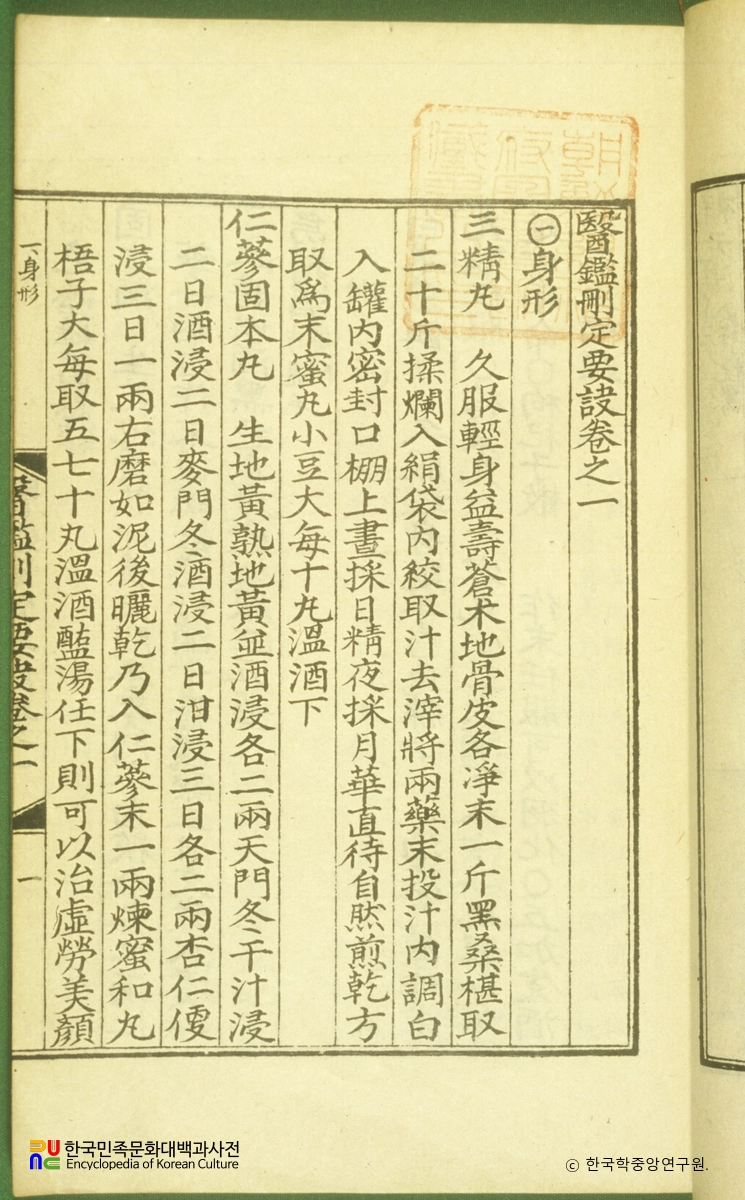 醫鑑刪定要訣卷之一
㊀身形
三精丸 久服輕身益壽蒼朮地骨皮各凈末一斤黑桑椹取
二十斤揉爛入絹袋內絞取汁去滓將兩藥末投汁內調白
入罐內密封口棚上晝採日精夜採月華直待自然煎乾方
取爲末蜜丸小豆大每十丸溫酒下
仁蔘固本丸 生地黃熟地黃並酒浸各二兩天門冬干汁浸
二日酒浸二日麥門冬酒浸二日泔浸三日各二兩杏仁
浸三日一兩右磨如泥後曬乾乃入仁蔘末一兩煉蜜和丸
梧子大每取五七十丸溫酒鹽湯任下則可以治虛勞美顔
一、身形
醫鑑刪定要訣卷之一
一
한국민족문화대백과사전
Encyclopedia of Korean Culture
© 한국학중앙연구원.